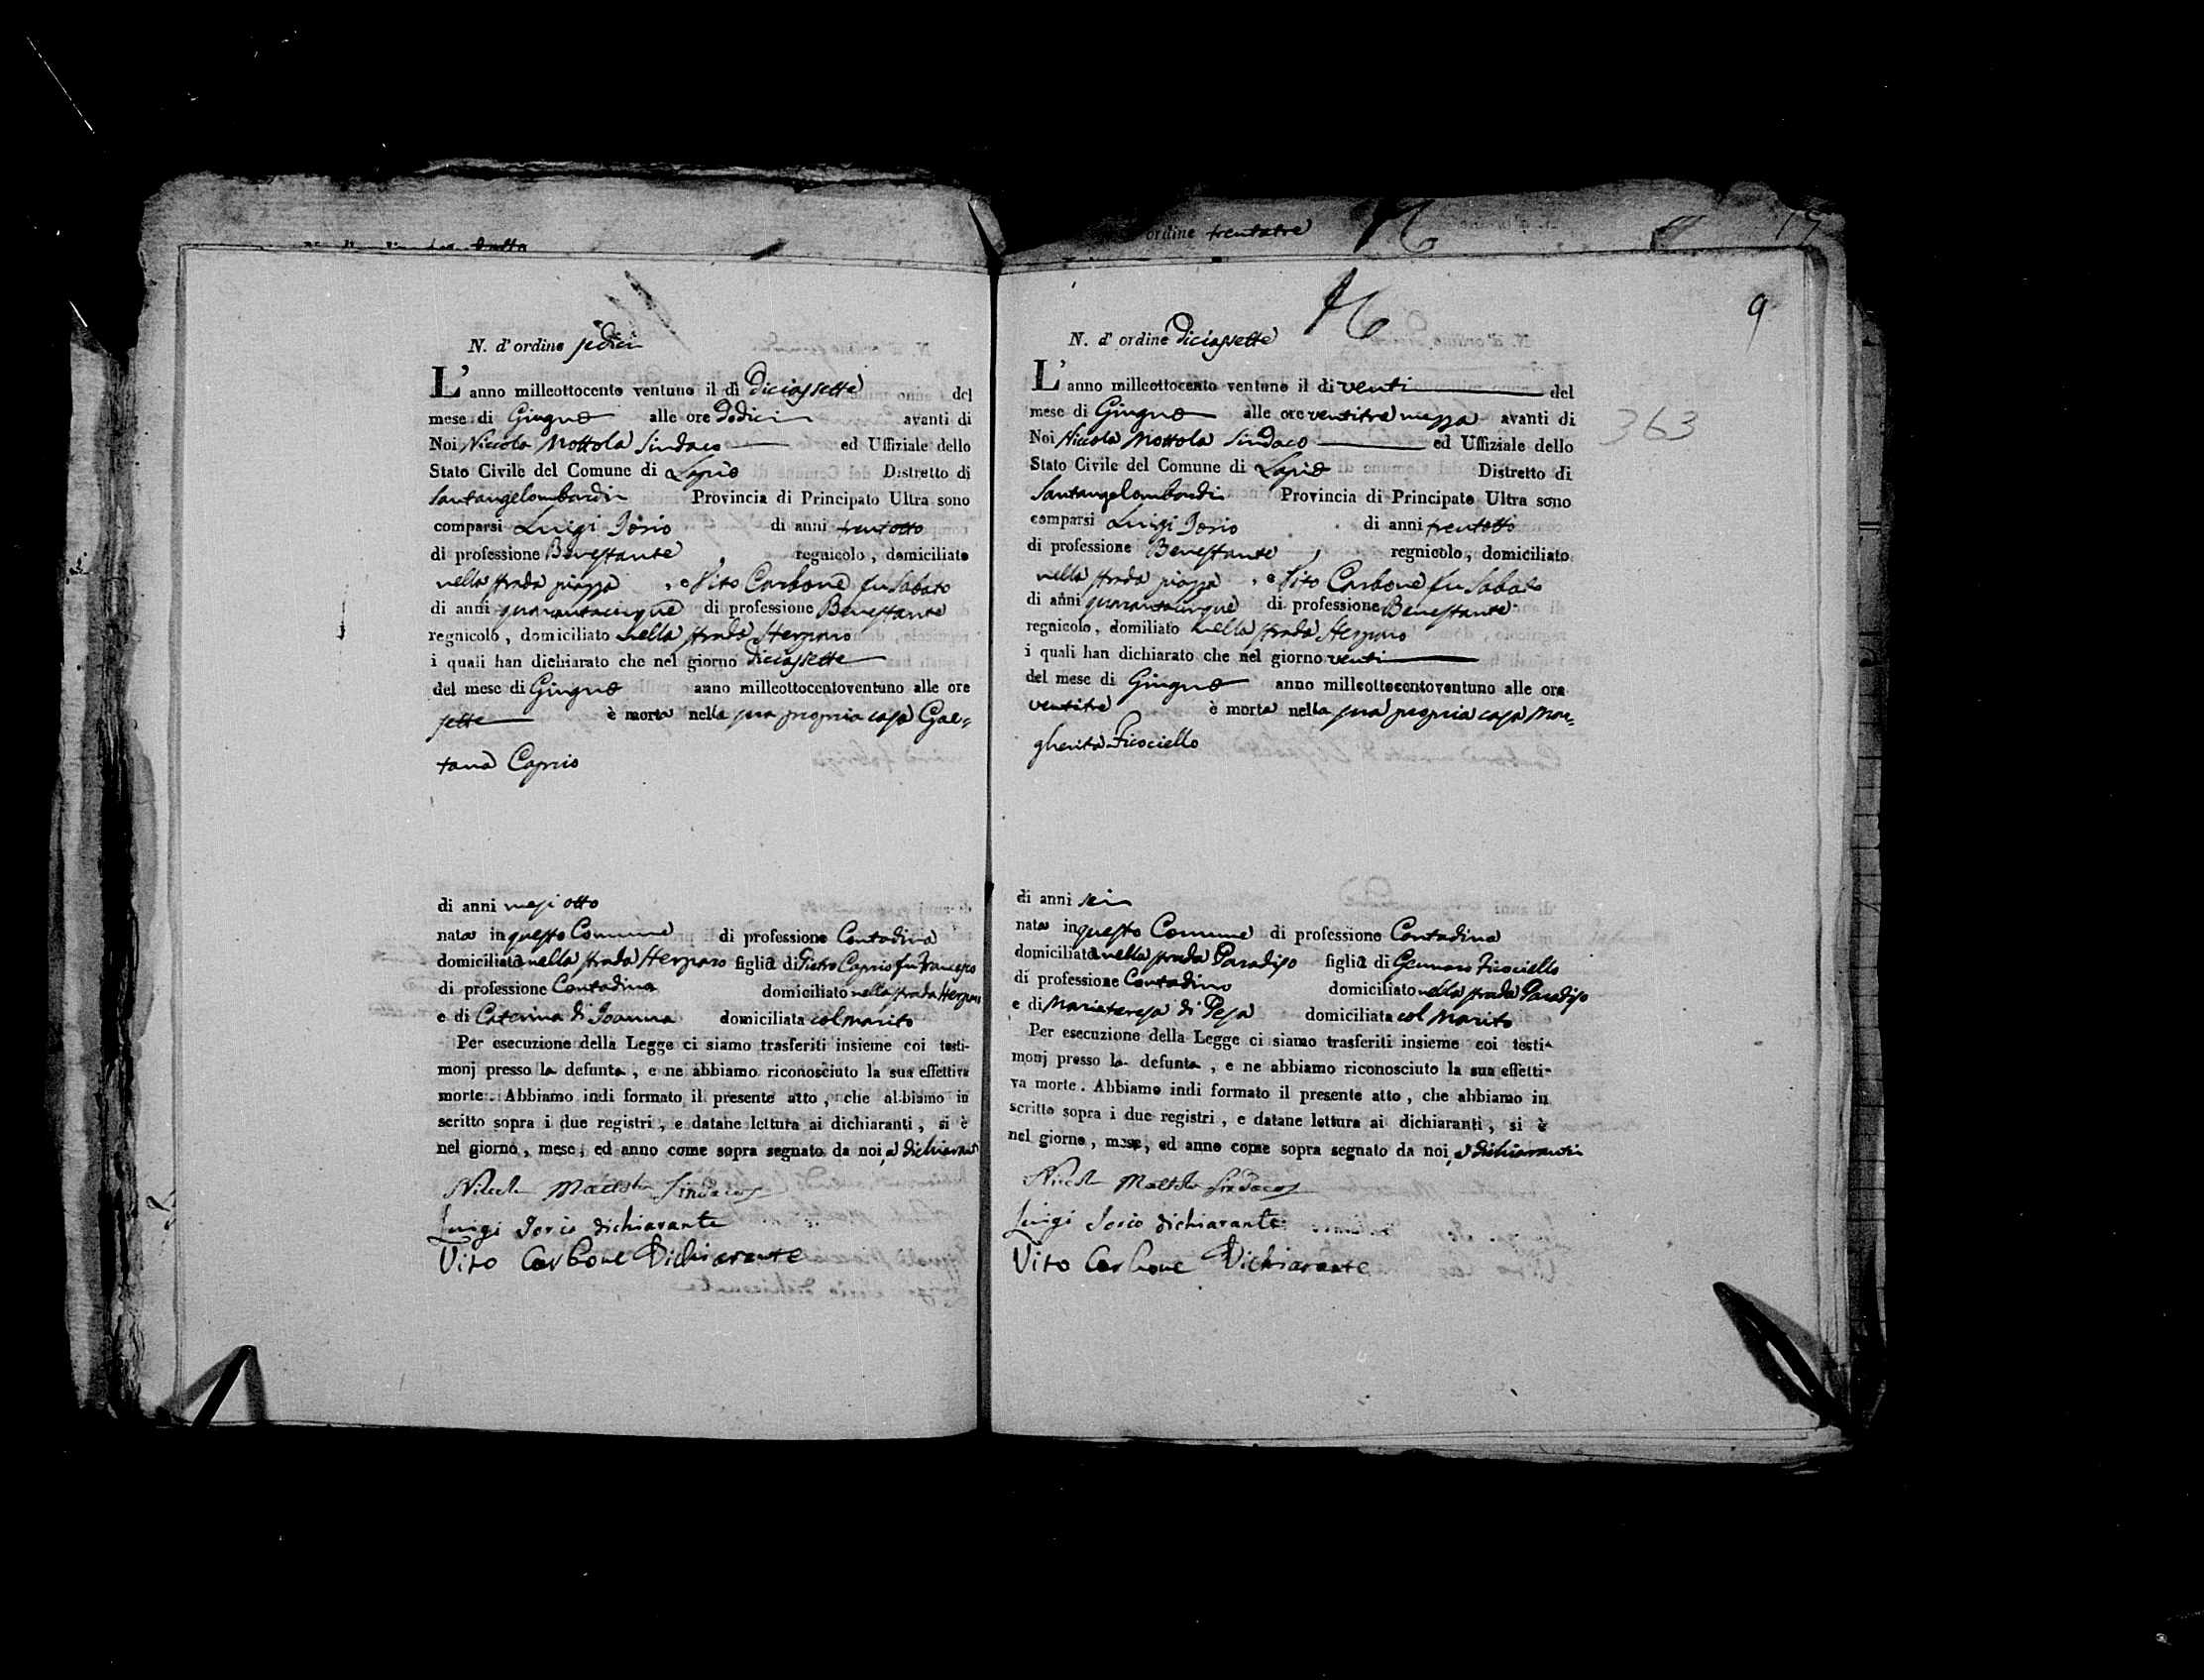 N. d'ordine sedici
L'anno milleottocento ventuno il dì Diciassette del
mese di Giugno alle ore Dodici avanti di
Noi Niccola Mottola Sindaco ed Uffiziale dello
Stato Civile del Comune di Lapio Distretto di
Santangelombardi Provincia di Principato Ultra sono
comparsi Luigi Iorio di anni trentotto
di professione Benestante , regnicolo, domiciliato
nella strada piazza , e Vito Carbone fu Sabato
di anni quarantacinque di professione Benestante
regnicolo, domiciliato nella strada
i quali han dichiarato che nel giorno diciassette
del mese di Giugno anno milleottocentoventuno alle ore
sette è morta nella sua propria casa Gae=
tana Caprio
di anni mesi otto
nata in questo Comune di professione Contadina
domiciliata nella strada figlia di Pietro Caprio fu Francesco
di professione Contadino domiciliato nella strada
e di Caterina di Joanna domiciliata col marito
Per esecuzione della Legge ci siamo trasferiti insieme coi testi-
monj presso la defunta, e ne abbiamo riconosciuto la sua effettiva
morte. Abbiamo indi formato il presente atto, che abbiamo in
scritto sopra i due registri, e datane lettura ai dichiaranti, si è
nel giorno, mese, ed anno come sopra segnato da noi, e dichiaranti
Niccola Mottola Sindaco
Luigi Iorio dichiarante
Vito Carbone Dichiarante
ordine trentatre
9
N. d'ordine Diciassette
L'anno milleottocento ventuno il di venti del
mese di Giugno alle ore ventitre mezza avanti di
363
Noi Niccola Mottola Sindaco ed Uffiziale dello
Stato Civile del Comune di Lapio Distretto di
Santangelombardi Provincia di Principato Ultra sono
comparsi Luigi Iorio di anni trentotto
di professione Benestante , regnicolo, domiciliato
nella strada piazza , e Vito Carbone fu Sabato
di anni quarantacinque di professione Benestante
regnicolo, domiliato nella strada
i quali han dichiarato che nel giorno venti
del mese di Giugno anno milleottocentoventuno alle ore
ventitre è morta nella sua propria casa Mar=
gherita Ficociello
di anni sei
nata in questo Comune di professione Contadina
domiciliata nella strada Paradiso figlia di Gennaro Ficociello
di professione Contadino domiciliato nella strada Paradiso
e di Mariateresa di Pesa domiciliata col Marito
Per esecuzione della Legge ci siamo trasferiti insieme coi testi-
monj presso la defunta, e ne abbiamo riconosciuto la sua effetti-
va morte. Abbiamo indi formato il presente atto, che abbiamo in
scritto sopra i due registri, e datane lettura ai dichiaranti, si è
nel giorno, mese, ed anno come sopra segnato da noi, e dichiaranti
Niccola Mottola Sindaco
Luigi Iorio dichiarante
Vito Carbone Dichiarante